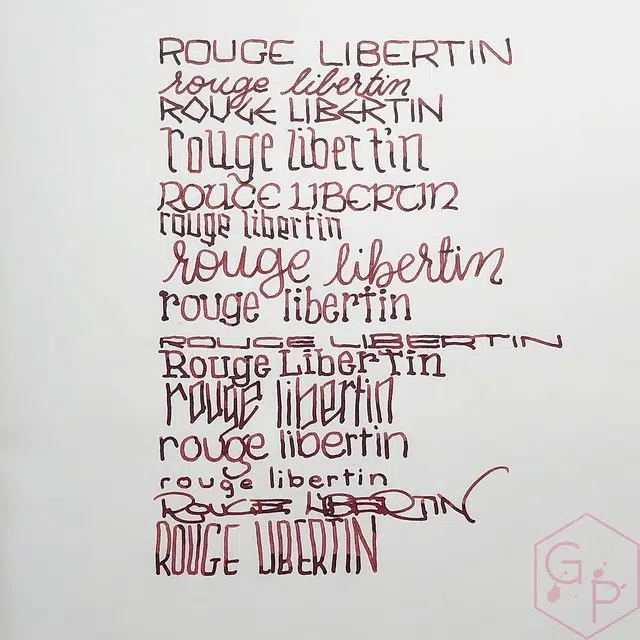 ROUGE LIBERTIN
rouge libertin
ROUGE LIBERTIN
rouge libertin
ROUGE LIBERTIN
rouge libertin
rouge libertin
rouge libertin
ROUGE LIBERTIN
Rouge Libertin
rouge libertin
rouge libertin
rouge libertin
ROUGE LIBERTIN
ROUGE LIBERTIN
G
P